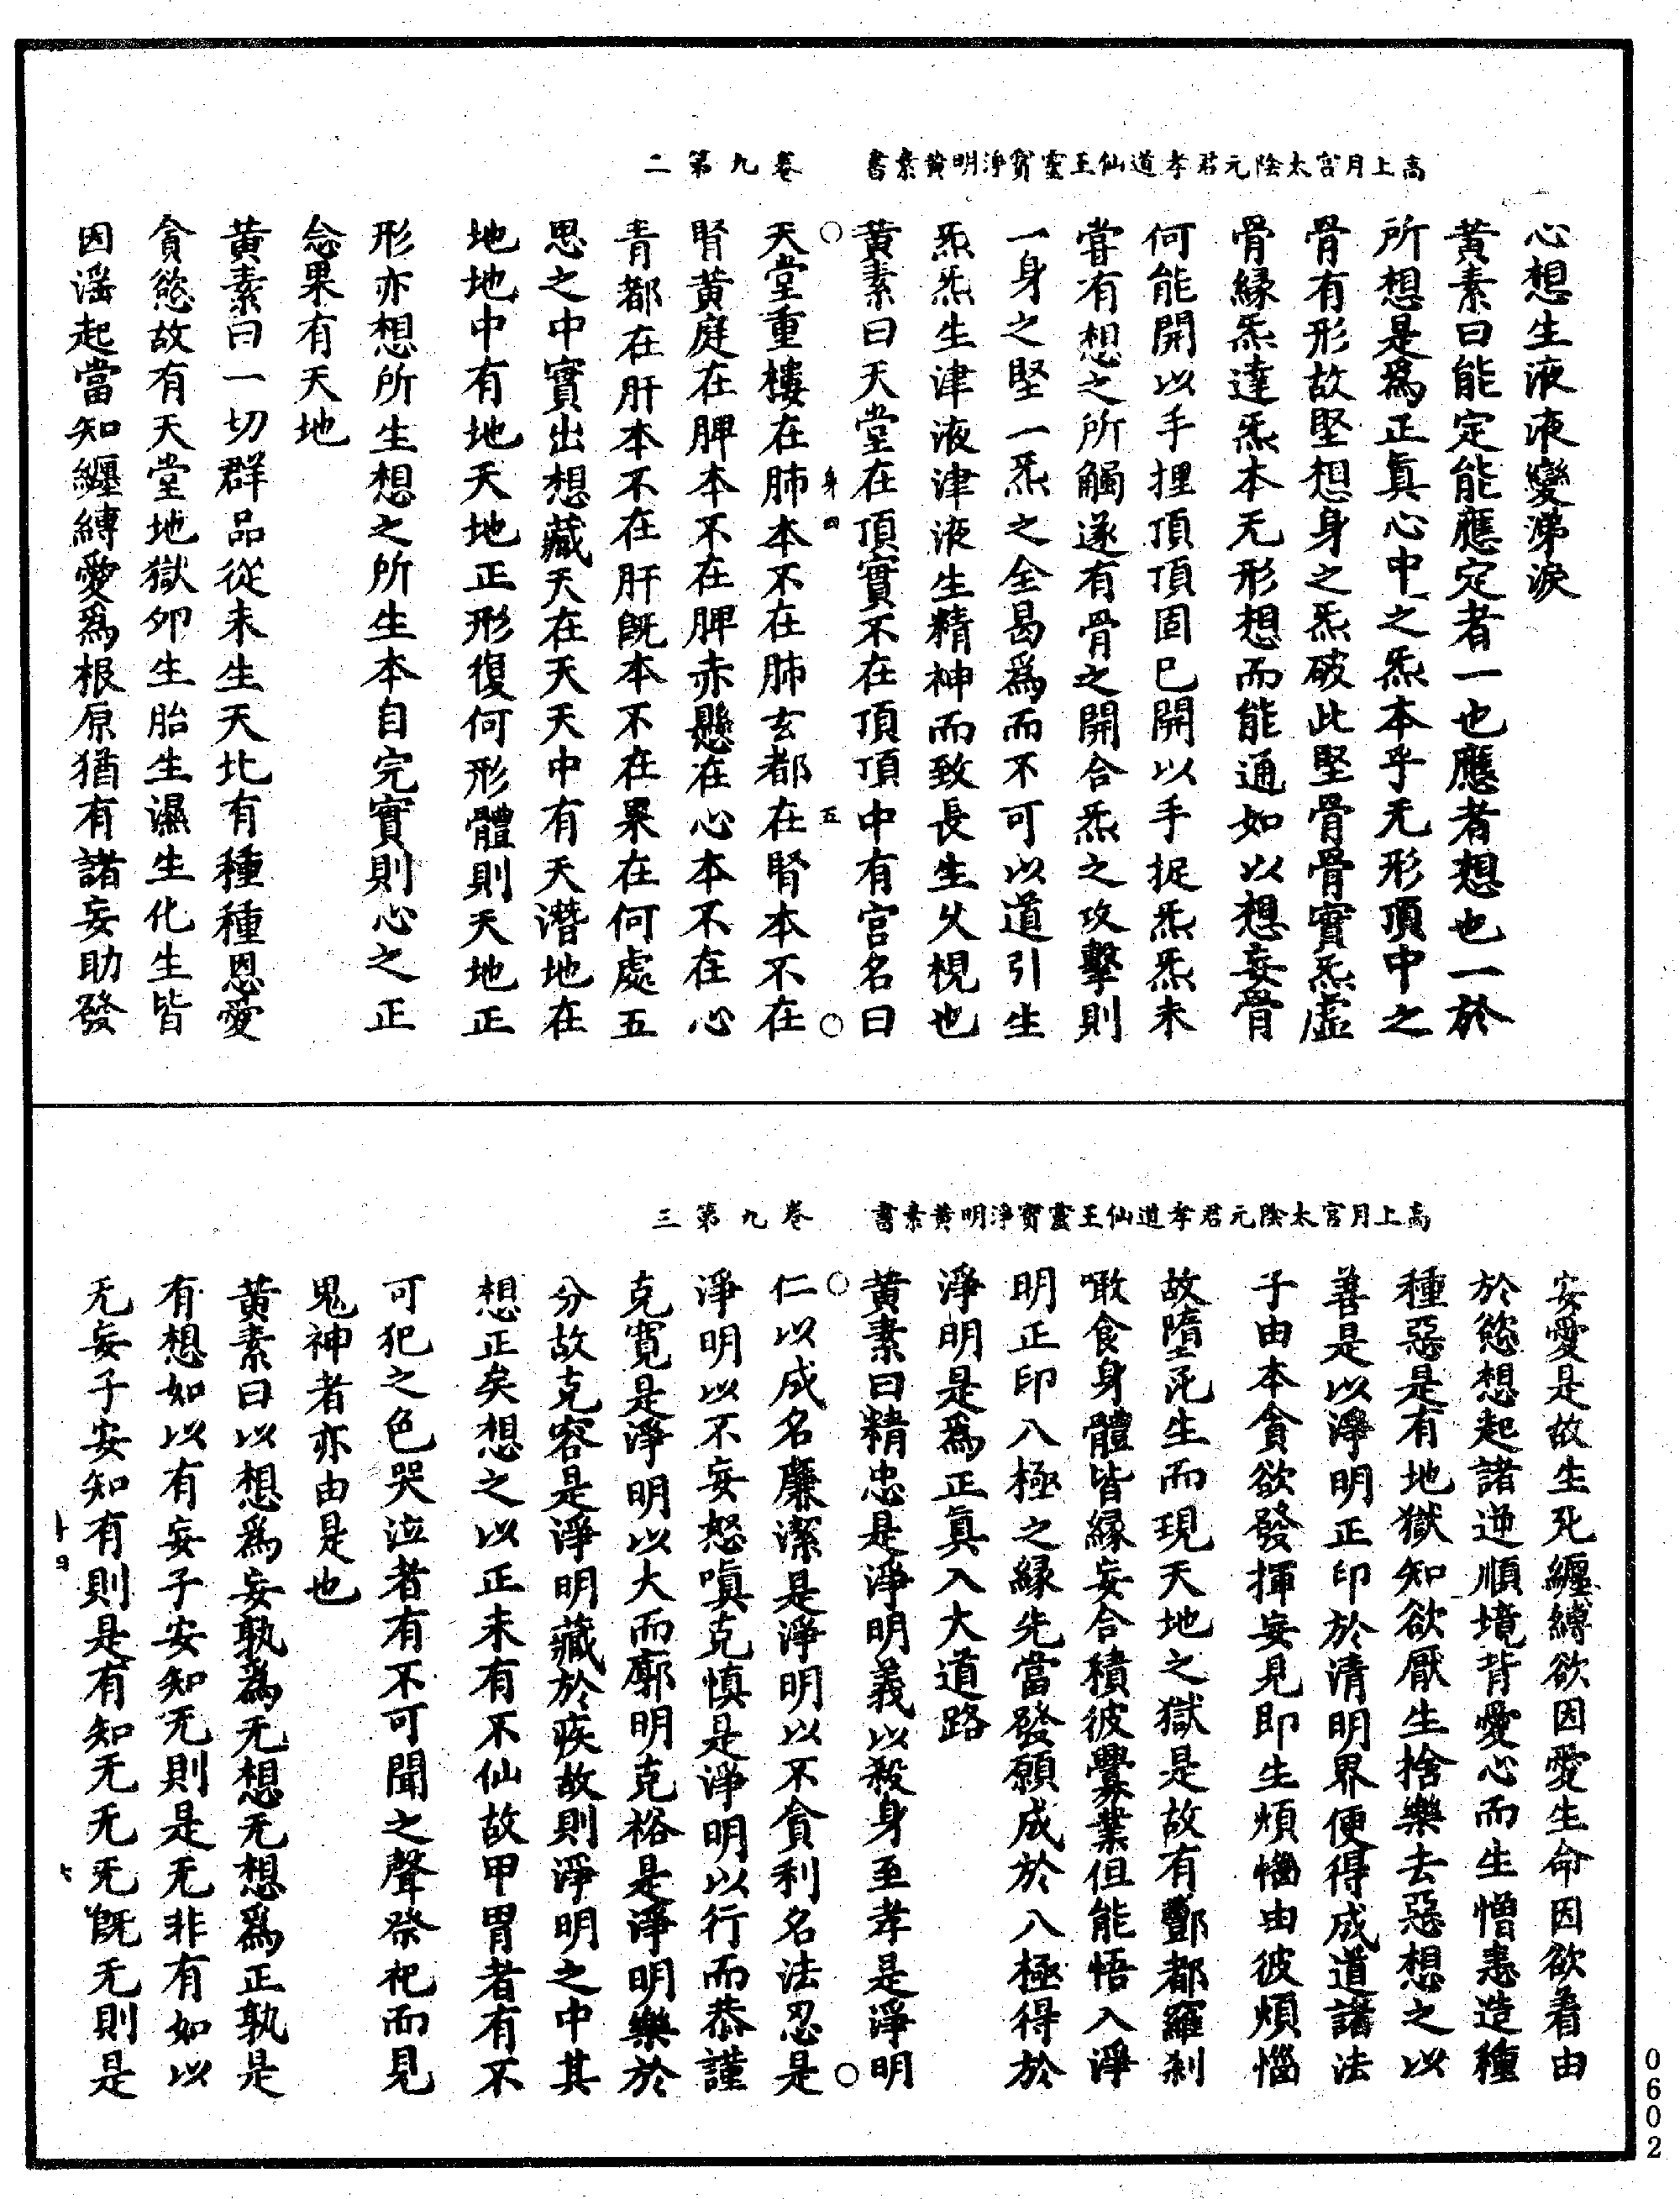 高上月宮太陰元君孝道仙王靈寶淨明黃素書　卷九第二
心想生液液變涕淚
黃素曰能定能應定者一也應者想也一於
所想是為正真心中之炁本乎无形頂中之
骨有形故堅想身之炁破此堅骨骨實炁虛
骨緣炁達炁本无形想而能通如以想妄骨
何能開以手捏頂頂固已開以手捉炁炁未
嘗有想之所觸遂有骨之開合炁之攻擊則
一身之堅一炁之全曷為而不可以道引生
炁炁生津液津液生精神而致長生久視也
黃素曰天堂在頂實不在頂頂中有宮名曰
天堂重樓在肺本不在肺玄都在腎本不在
腎黃庭在脾本不在脾赤懸在心本不在心
青都在肝本不在肝既本不在果在何處五
思之中實出想藏天在天天中有天潛地在
地地中有地天地正形復何形體則天地正
形亦想所生想之所生本自完實則心之正
念果有天地
黃素曰一切群品從未生天北有種種恩愛
貪慾故有天堂地獄卵生胎生濕生化生皆
因滛起當知纏縛愛為根原猶有諸妄助發
高上月宮太陰元君孝道仙王靈寶淨明黃素書　卷九第三
妄愛是故生死纏縛欲因愛生命因欲着由
於慾想起諸逆順境背愛心而生憎恚造種
種惡是有地獄知欲厭生捨樂去惡想之以
善是以淨明正印於清明界便得成道諸法
子由本貪欲發揮妄見即生煩惱由彼煩惱
故墮死生而現天地之獄是故有酆都羅刹
噉食身體皆緣妄合積彼釁業但能悟入淨
明正印八極之緣先當發願成於八極得於
淨明是為正真入大道路
黃素曰精忠是淨明義以殺身至孝是淨明
仁以成名廉潔是淨明以不貪利名法忍是
淨明以不妄怒嗔克慎是淨明以行而恭謹
克寬是淨明以大而廓明克裕是淨明樂於
分故克容是淨明藏於疾故則淨明之中其
想正矣想之以正未有不仙故甲胄者有不
可犯之色哭泣者有不可聞之聲祭祀而見
鬼神者亦由是也
黃素曰以想為妄孰為无想无想為正孰是
有想如以有妄子安知无則是无非有如以
无妄子安知有則是有知无无无既无則是
0602